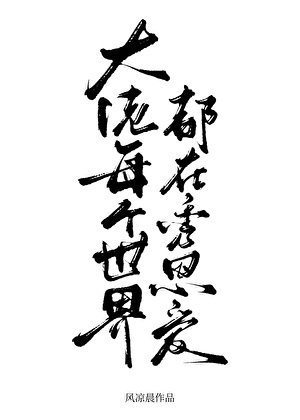 大佬每个世界
都在秀恩爱
风凉晨作品